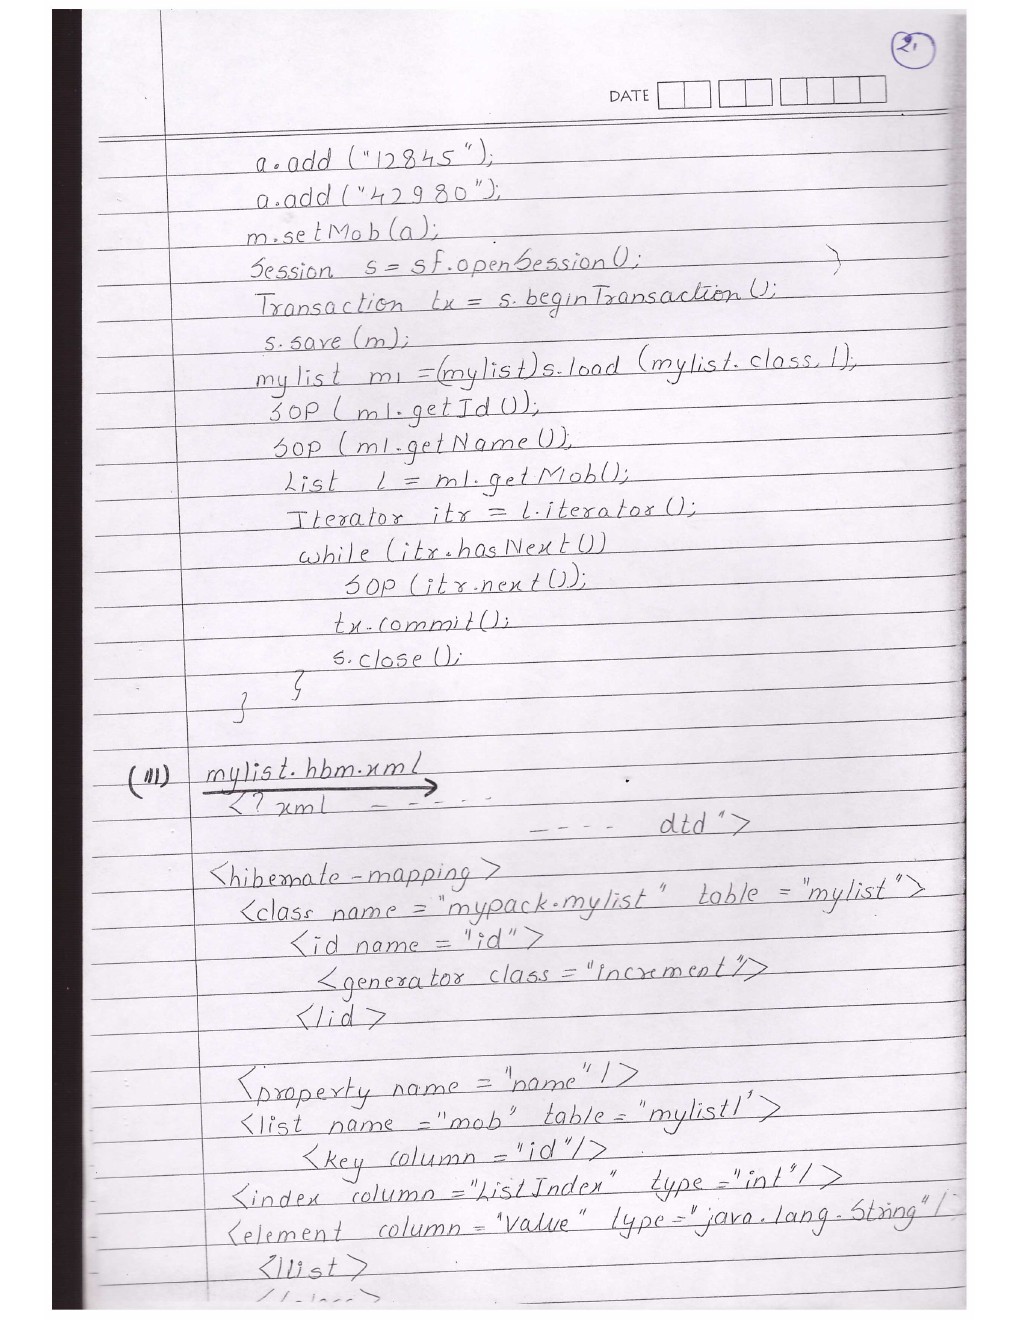 2.
DATE
a.add ("12845");
a.add ("42980");
m.setMob(a);
Session s = sf.openSession();
Transaction tx = s.beginTransaction();
s.save (m);
mylist m1 =(mylist)s.load (mylist.class, 1);
SOP ( m1.getId ());
SOP ( m1.getName ());
List l = m1.getMob();
Iterator itr = l.iterator ();
while (itr.hasNext())
SOP (itr.next());
tx.commit();
s.close ();
}
}
(III) mylist.hbm.xml
<? xml - - - - - -
- - - - dtd ">
<hibernate-mapping>
<class name = "mypack.mylist" table = "mylist">
<id name = "id">
<generator class = "increment"/>
</id>
<property name = "name" />
<list name ="mob" table = "mylist1">
<key column = "id"/>
<index column ="ListIndex" type ="int"/>
<element column = "value" type =" java.lang.String"/
</list>
</class>